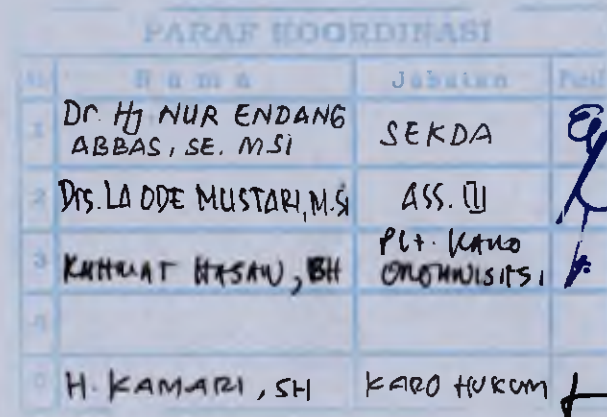 PARAF KOORDINASI
No Nama Jabatan Paraf
1 Dr. Hj NUR ENDANG ABBAS, SE. MSi SEKDA
2 Drs. LA ODE MUSTARI, M.Si ASS. III
3 HASAN, SH Plt. KARO
4
5 H. KAMARI, SH KARO HUKUM